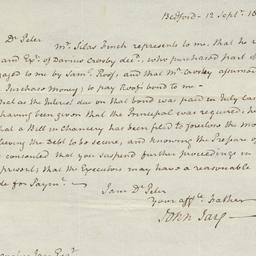 Bedford - 12 Septr. 18
Dr Peter
Mr. Silas Finch represents to me, that he
and Exr. of Darius Crosby decd., who purchased part of
to me by Saml. Roof, and that Mr Crosby assumed
Purchase Money; to pay Roof's bond to me -
as the Interest due on that bond was paid in July last
having been given that the Principal was required, he
that a Bill in Chancery has been filed to foreclose the mo
the Debt to be secure, and knowing the
consented that you suspend further proceedings in
that the Executors may have a reasonable
for Paymt. -
I am Dr Peter
Your affte. Father
John Jay -
Jay Esqr.